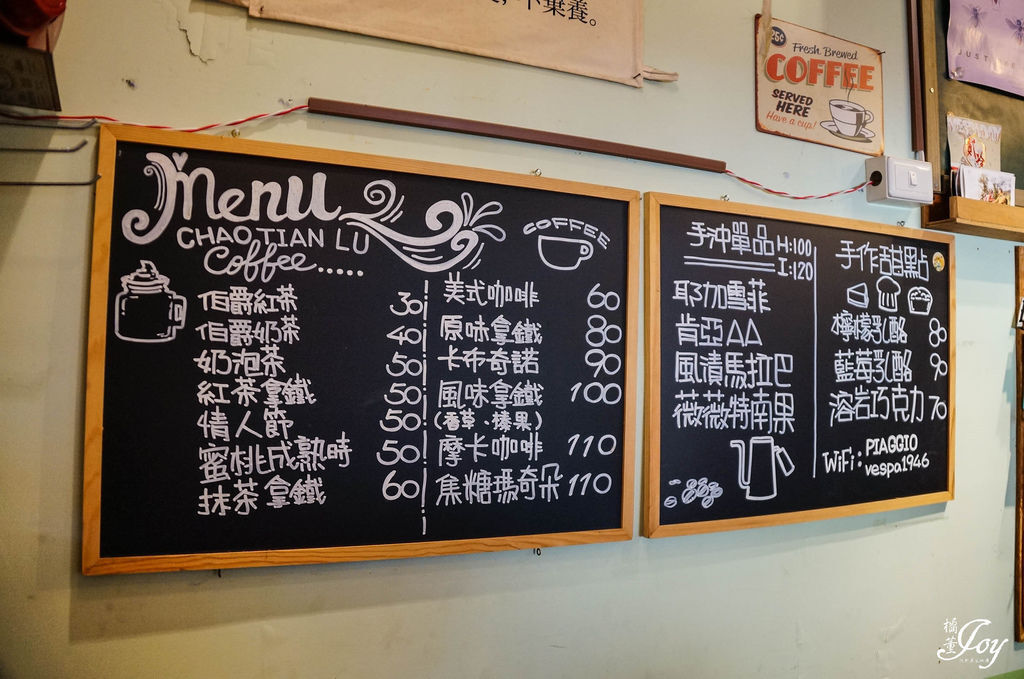 Fresh Brewed
COFFEE
SERVED
HERE
Have a cup!
Menu
CHAOTIAN LU
Coffee......
COFFEE
伯爵紅茶 30
伯爵奶茶 40
奶泡茶 50
紅茶拿鐵 50
情人節 50
蜜桃成熟時 50
抹茶拿鐵 60
美式咖啡 60
原味拿鐵 80
卡布奇諾 90
風味拿鐵 100
(香草、榛果)
摩卡咖啡 110
焦糖瑪奇朵 110
手沖單品 H:100
I:120
耶加雪菲
肯亞AA
風漬馬拉巴
薇薇特南果
手作甜點
檸檬乳酪 80
藍莓乳酪 90
溶岩巧克力 70
WiFi: PIAGGIO
vespa1946
Joy